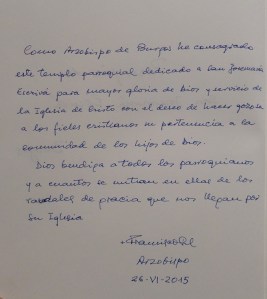 Como Arzobispo de Burgos he consagrado
este templo parroquial dedicado a san Josemaría
Escrivá para mayor gloria de Dios y servicio de
la Iglesia de Cristo con el deseo de hacer gozosa
a los fieles cristianos su pertenencia a la
comunidad de los hijos de Dios.
Dios bendiga a todos los parroquianos
y a cuantos se nutran en ellas de los
raudales de gracia que nos llegan por
su Iglesia
Arzobispo
26-VI-2015